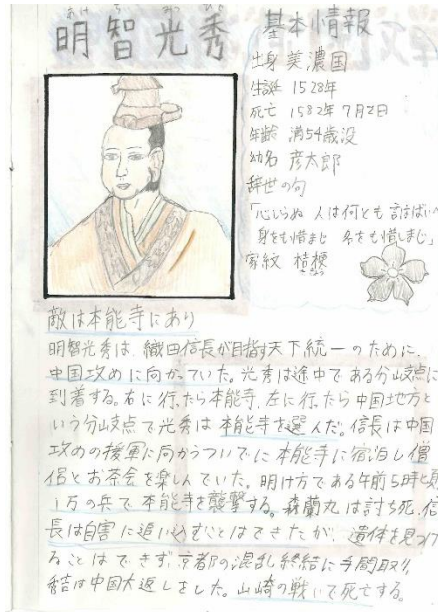 あけ ち みつ ひで
明智光秀
基本情報
出身 美濃国
生誕 1528年
死亡 1582年7月2日
年齢 満54歳没
幼名 彦太郎
辞世の句
「心しらぬ 人は何とも 言はばいへ
身をも惜まじ 名をも惜しまじ」
家紋 桔梗
ききょう
敵は本能寺にあり
明智光秀は、織田信長が目指す天下統一のために、
中国攻めに向かっていた。光秀は途中である分岐点に
到着する。右に行ったら本能寺、左に行ったら中国地方と
いう分岐点で光秀は本能寺を選んだ。信長は中国
攻めの援軍に向かうついでに本能寺に宿泊し僧
侶とお茶会を楽しんでいた。明け方である午前5時
1万の兵で本能寺を襲撃する。森蘭丸は討ち死、信
長は自害に追い込むことはできたが、遺体を見つけ
ることはできず、京都の混乱終結に手間取り、
秀吉は中国大返しをした。山崎の戦いで死亡する。